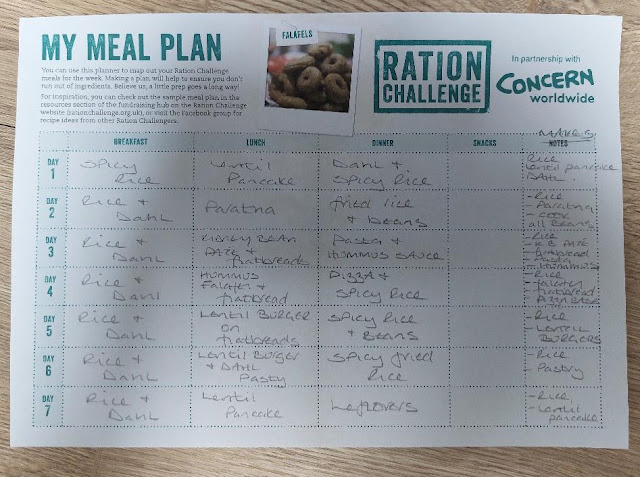 FALAFELS
MY MEAL PLAN
You can use this planner to map out your Ration Challenge
meals for the week. Making a plan will help to ensure you don't
run out of ingredients. Believe us, a little prep goes a long way!
For inspiration, you can check out the sample meal plan in the
resources section of the fundraising hub on the Ration Challenge
website (rationchallenge.org.uk), or visit the Facebook group for
recipe ideas from other Ration Challengers.
RATION
CHALLENGE
In partnership with
CONCERN
worldwide
BREAKFAST
LUNCH
DINNER
SNACKS
MAKES
NOTES
DAY
1
Spicy
Rice
Lentil
Pancake
Dahl +
Spicy Rice
Rice
Lentil pancake
DAHL
DAY
2
Rice +
Dahl
Paratha
fried rice
+ beans
- Rice
- Paratha
- COOK
all BEANS
DAY
3
Rice +
Dahl
Kidney BEAN
PATE +
flatbreads
Pasta +
HUMMUS SAUCE
- Rice
- K.B PATE
- flatbread
- Pasta
- Hummus
DAY
4
Rice +
Dahl
HUMMUS
Falafel +
flatbread
Pizza +
Spicy Rice
- Rice
- falafel
- flatbread
- PIZZA BASE
DAY
5
Rice +
Dahl
Lentil BURGER
on
flatbreads
Spicy Rice
+ Beans
- Rice
- LENTIL
BURGERS
DAY
6
Rice +
Dahl
Lentil Burger
+ DAHL
Pasty
Spicy fried
Rice
- Rice
- Pastry
DAY
7
Rice +
Dahl
Lentil
Pancake
Leftovers
- Rice
- Lentil
pancake